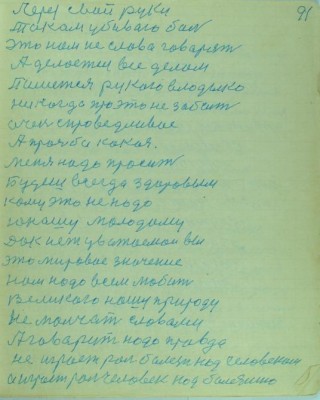 91
Перес свой руки
Таком убиваго бал
Это нам не слова говарят
А делоетец все делом
Пишется рукого влодимко
никогда про это не забит
очен справедливае
А прозба какая.
меня надо просит
Будиш всегда здоровым
кому это не надо
юнашу молодому
Док нет уважаемои вы
это мировое значение
нам надо всем любит
великого нашу природу
Не молчат словами
А говарит надо правда
не играет рол балезн над человеком
а играт рол человек над балезнию